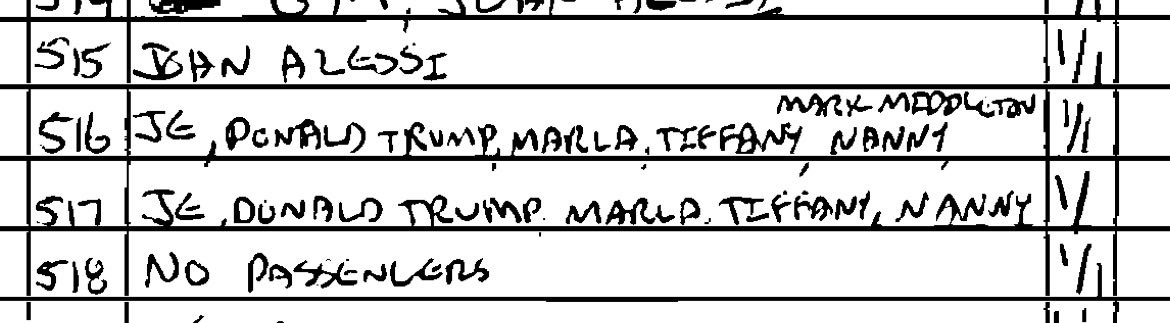 515 JOHN ALESSI 1/1
MARK MIDDLETON
516 JE, DONALD TRUMP, MARLA, TIFFANY NANNY 1/1
517 JE, DONALD TRUMP, MARLA, TIFFANY, NANNY 1/
518 NO PASSENGERS 1/1